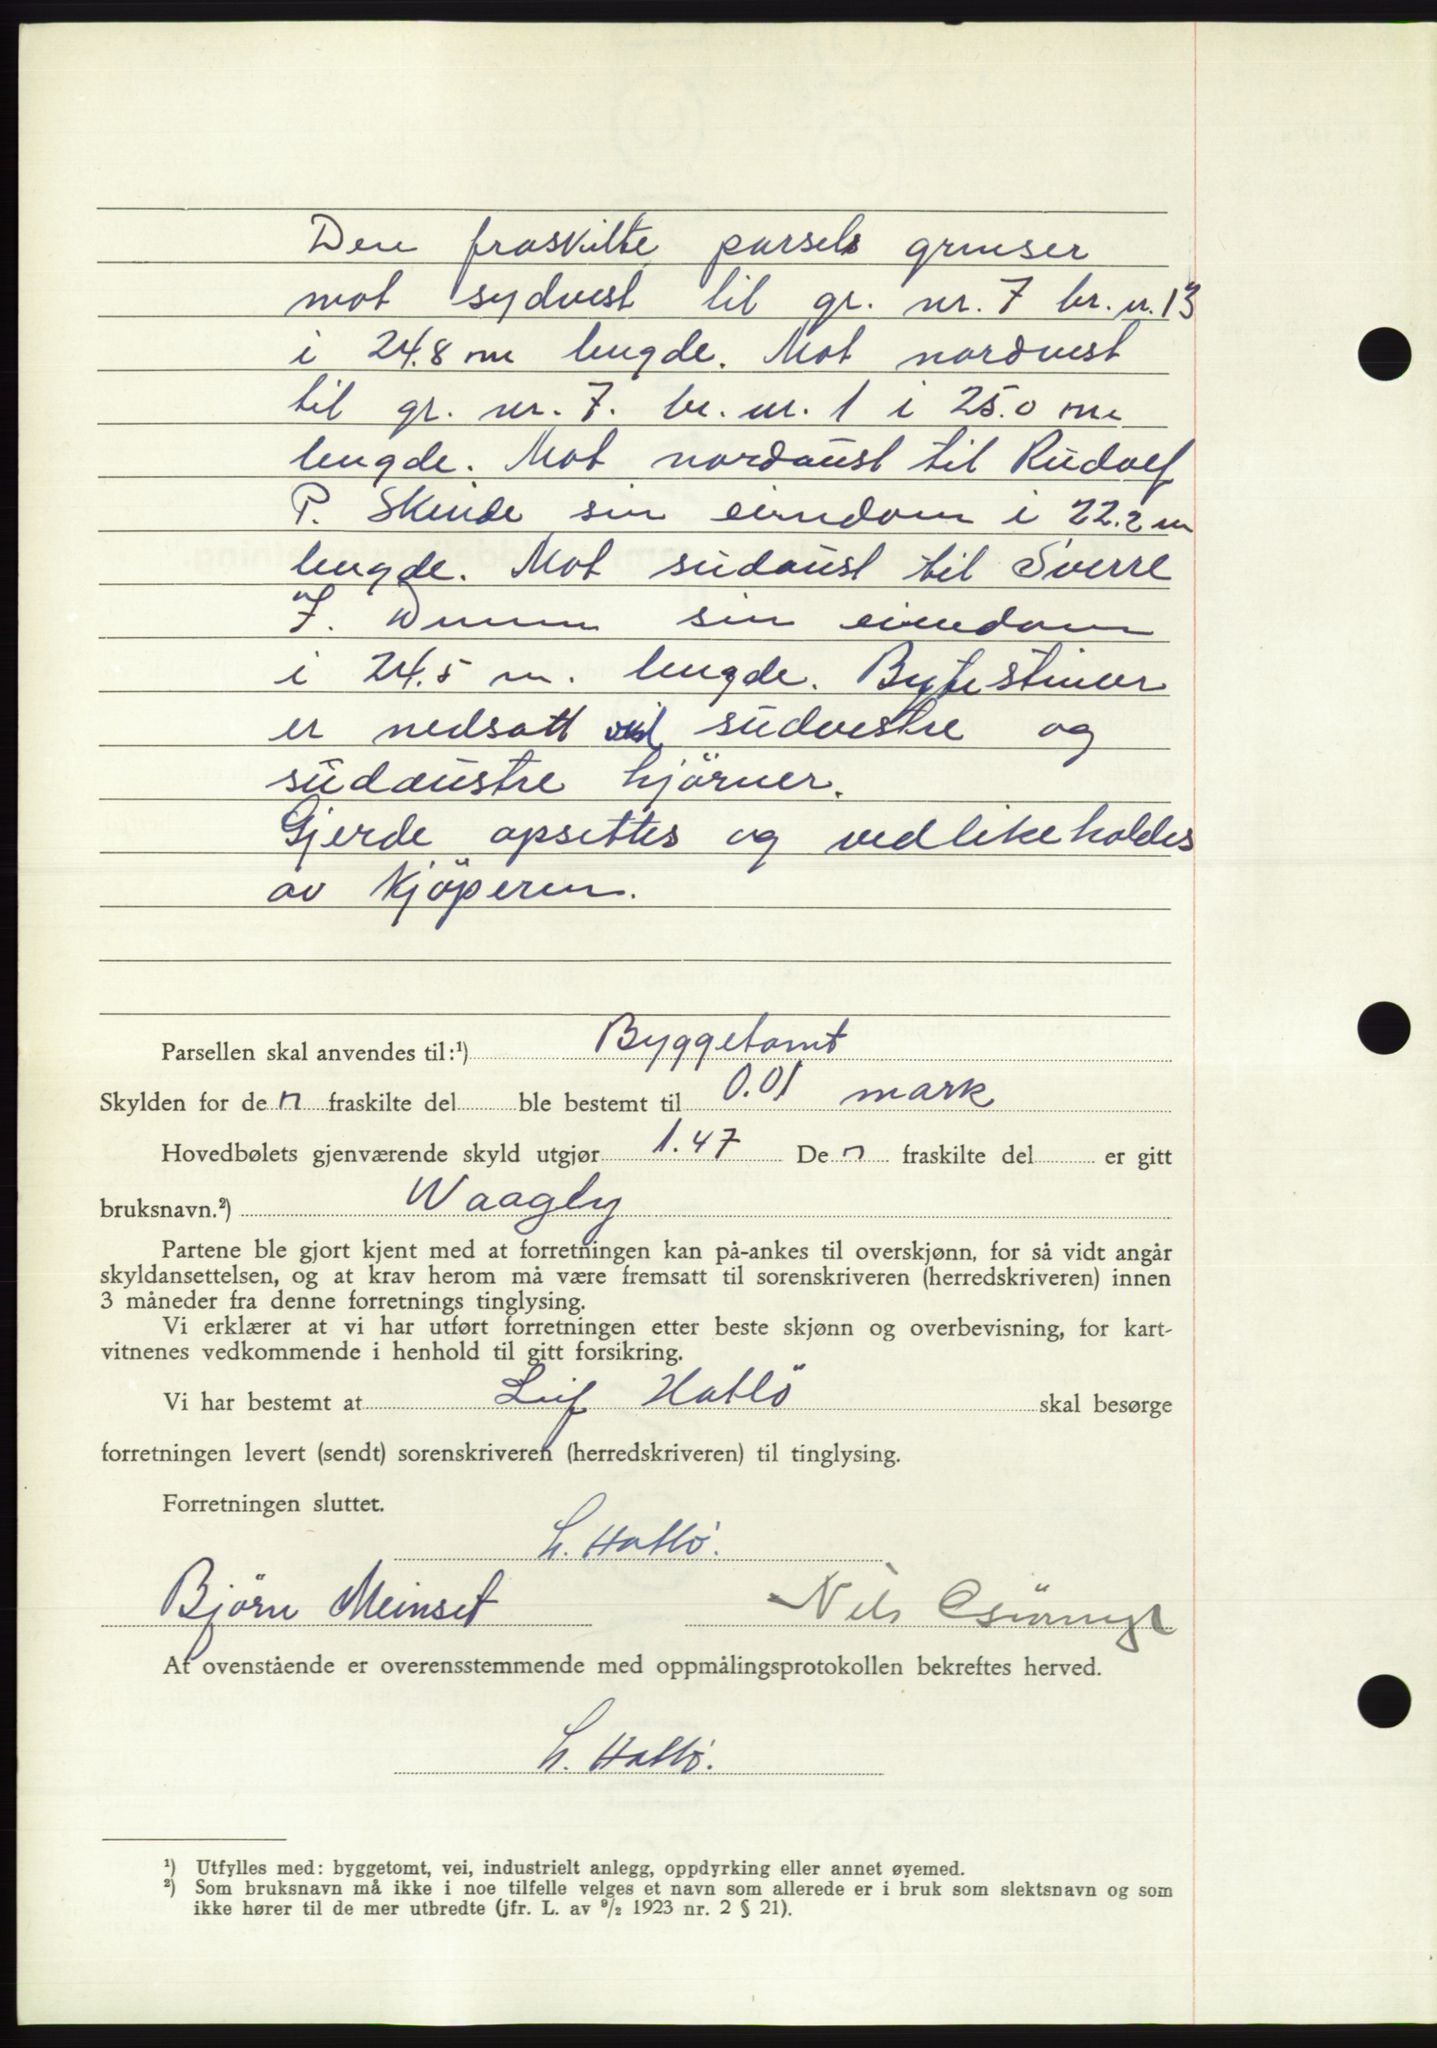 Den fraskilte parsels grenser
mot sydvest til gr. nr. 7 br. nr. 13
i 24.8 m lengde. Mot nordvest
til gr. nr. 7. br. nr. 1 i 25.0 m
lengde. Mot nordaust til Rudolf
P. Skeide sin eiendom i 22.2 m
lengde. Mot sudaust til Sverre
J. sin eiendom
i 24.5 m. lengde. Bytesteiner
er nedsatt ved sudvestre og
sudaustre hjörner.
Gjerde opsettes og vedlikeholdes
av Kjöperen.
Parsellen skal anvendes til:¹) Byggetomt
Skylden for de n fraskilte del ble bestemt til 0.01 mark
Hovedbølets gjenværende skyld utgjør 1.47 De n fraskilte del er gitt
bruksnavn.²) Waagly
Partene ble gjort kjent med at forretningen kan på-ankes til overskjønn, for så vidt angår
skyldansettelsen, og at krav herom må være fremsatt til sorenskriveren (herredskriveren) innen
3 måneder fra denne forretnings tinglysing.
Vi erklærer at vi har utført forretningen etter beste skjønn og overbevisning, for kart-
vitnenes vedkommende i henhold til gitt forsikring.
Vi har bestemt at Leif Hatlö skal besørge
forretningen levert (sendt) sorenskriveren (herredskriveren) til tinglysing.
Forretningen sluttet.
L. Hatlö.
Björn Meinset Nils
At ovenstående er overensstemmende med oppmålingsprotokollen bekreftes herved.
L. Hatlö.
¹) Utfylles med: byggetomt, vei, industrielt anlegg, oppdyrking eller annet øyemed.
²) Som bruksnavn må ikke i noe tilfelle velges et navn som allerede er i bruk som slektsnavn og som
ikke hører til de mer utbredte (jfr. L. av ⁹/₂ 1923 nr. 2 § 21).